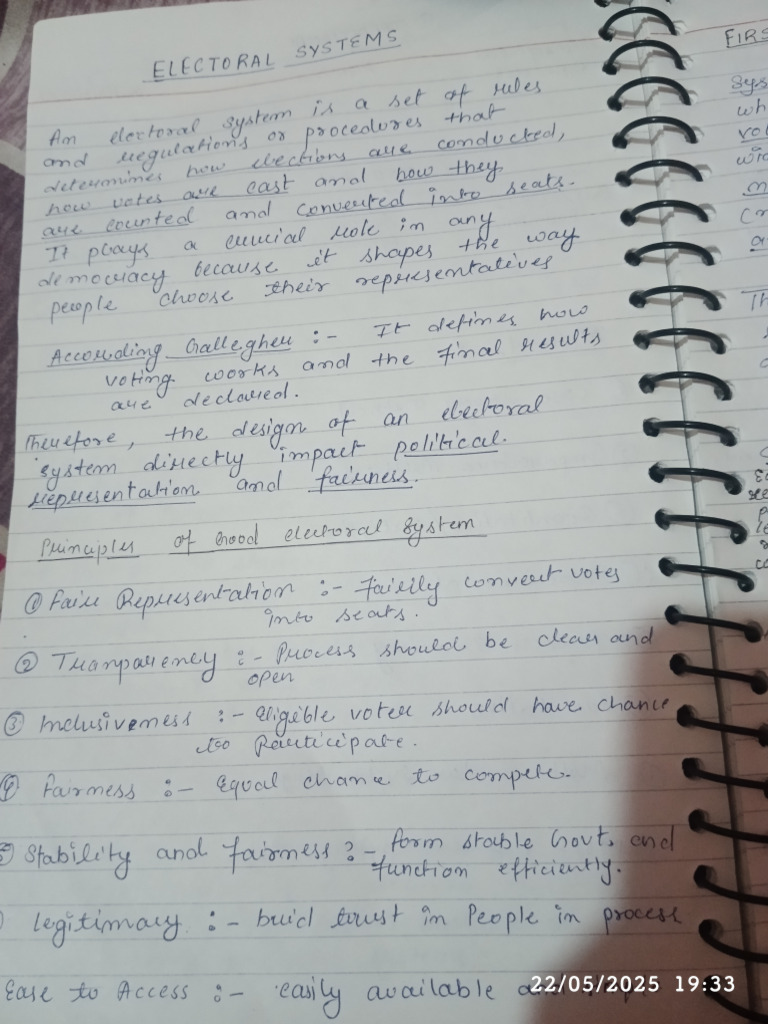 ELECTORAL SYSTEMS
An electoral system is a set of rules
and regulations or procedures that
determines how elections are conducted,
how votes are cast and how they
are counted and converted into seats.
It plays a crucial role in any
democracy because it shapes the way
people choose their representatives
According Gallegher :- It defines how
voting works and the final results
are declared.
Therefore, the design of an electoral
system directly impact political.
representation and fairness.
Principles of Good electoral system
① Faire Representation :- fairly convert votes
into seats.
② Tranparency :- Process should be clear and
open
③ Inclusiveness :- eligible voter should have chance
to Participate.
④ Fairness :- Equal chance to compete.
⑤ Stability and fairness :- form stable Govt. and
function efficiently.
legitimacy :- buid trust in People in process
Ease to Access :- easily available
22/05/2025 19:33
FIRS
Sys
wh
vot
wi
m
a
Th